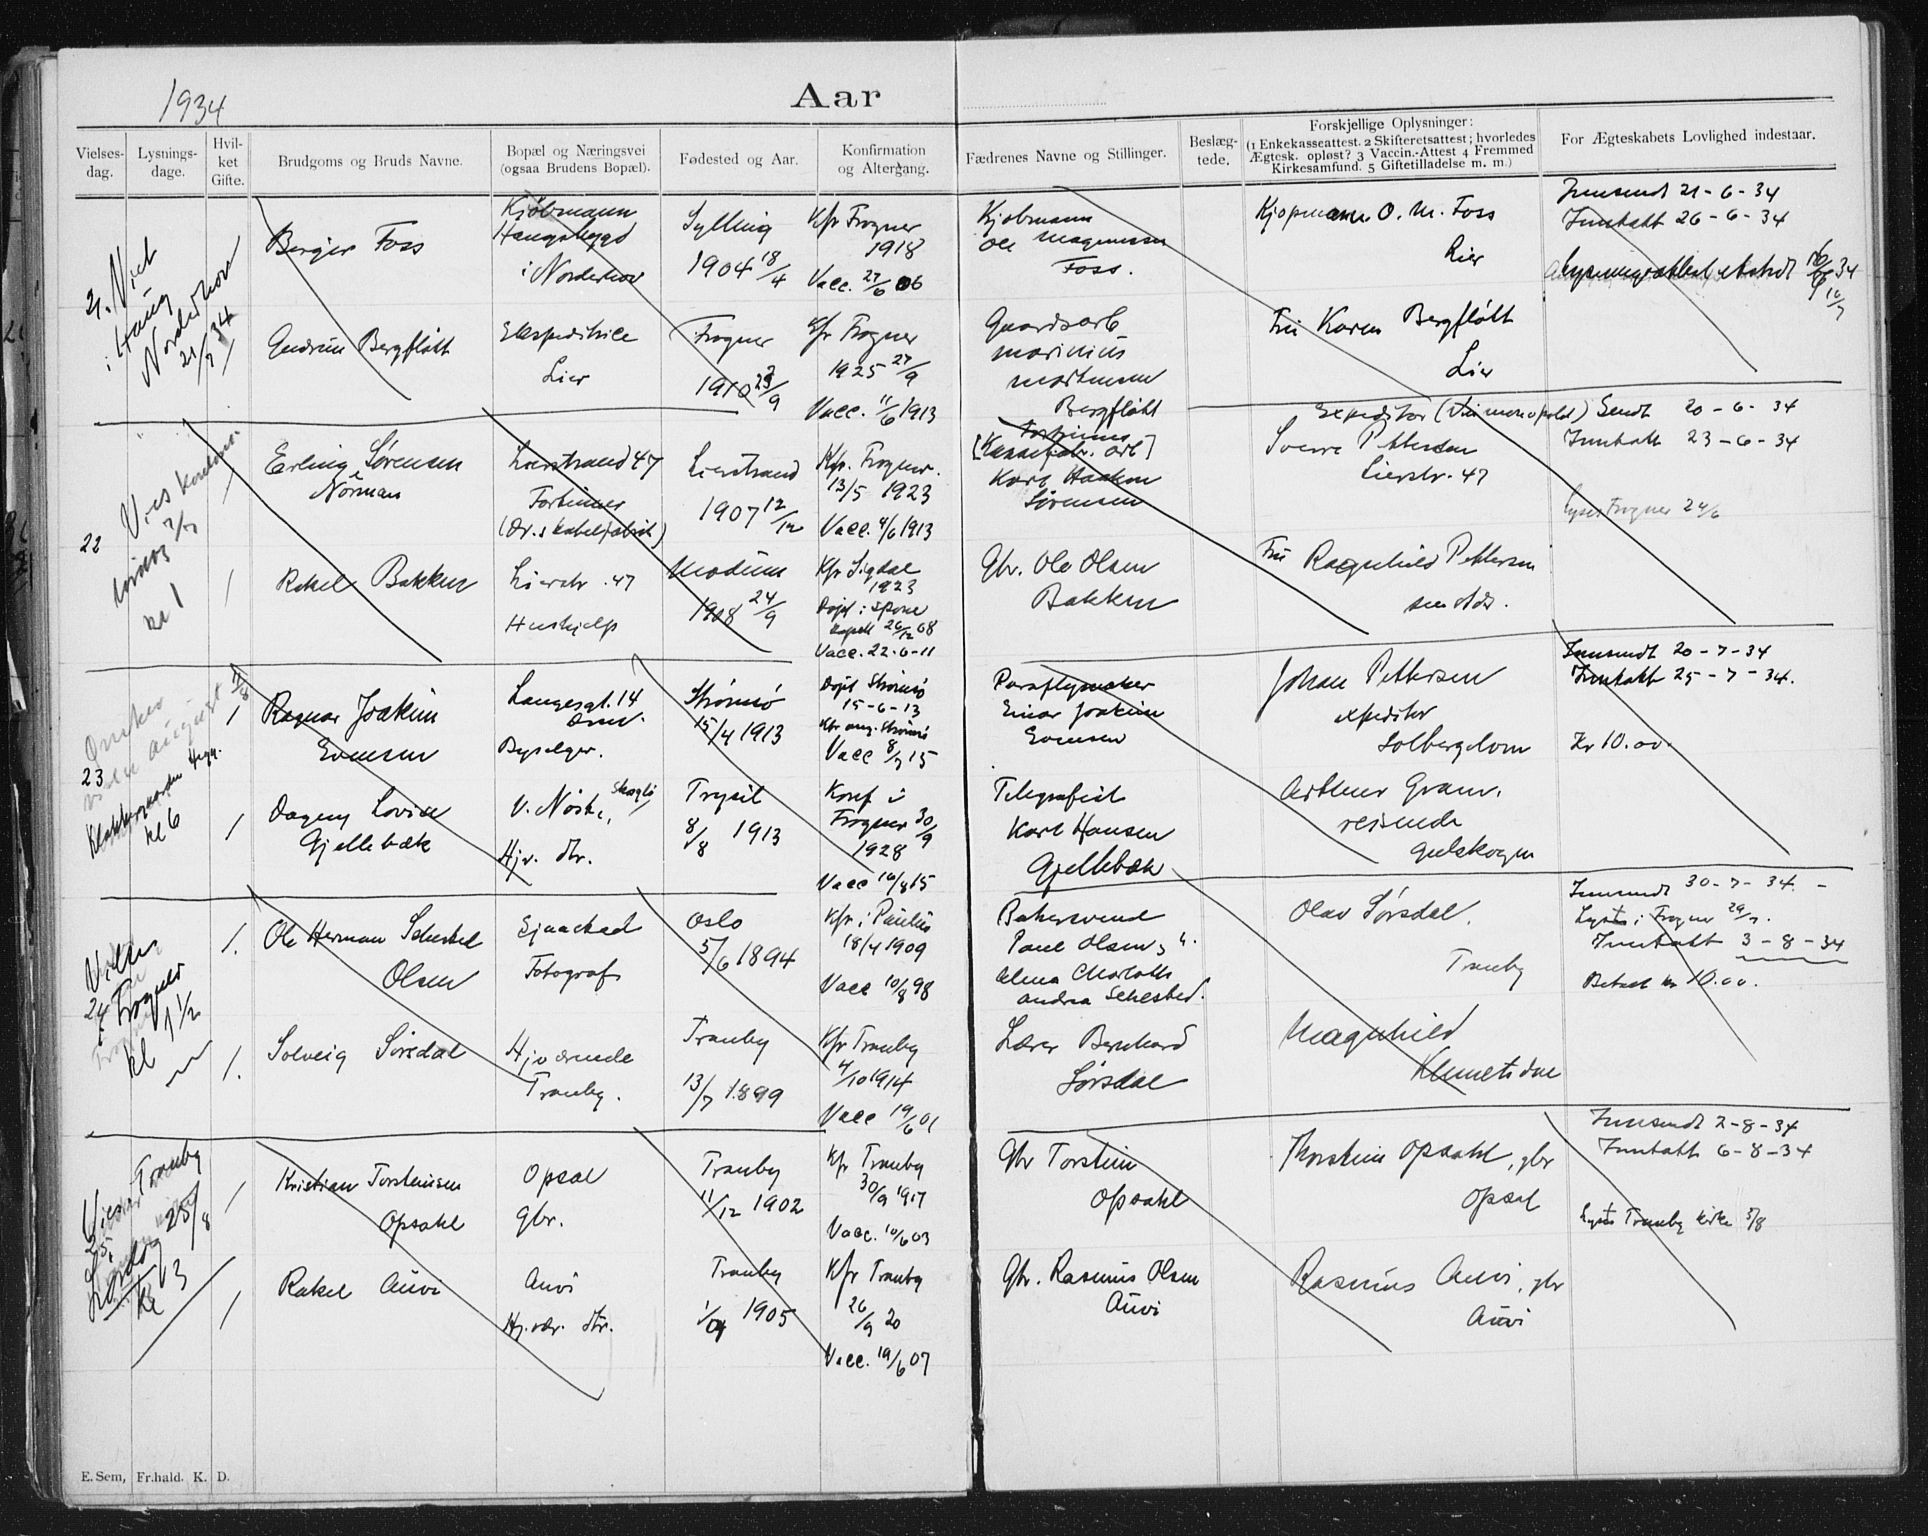 1934
Aar
Vielses-dag.
Lysnings-dage.
Hvil-ket Gifte.
Brudgoms og Bruds Navne.
Bopæl og Næringsvei
(ogsaa Brudens Bopæl).
Fødested og Aar.
Konfirmation
og Altergang.
Fædrenes Navne og Stillinger.
Beslæg-tede.
Forskjellige Oplysninger:
(1 Enkekasseattest. 2 Skifteretsattest; hvorledes
Ægtesk. opløst? 3 Vaccin.-Attest 4 Fremmed
Kirkesamfund. 5 Giftetilladelse m. m.)
For Ægteskabets Lovlighed indestaar.
21. Viet
i Haug
Norderhov
21/7 34
1
Berger Foss
Kjøbmann
Haugsbygd
i Norderhov
Sylling
1904 18/4
Kfr Frogner
1918
Vacc. 27/6 06
Kjøbmann
Ole Magnussen
Foss.
Kjøpmann O. M. Foss
Lier
Innsendt 21-6-34
Inntatt 26-6-34
Gudrun Bergfløtt
Ekspeditrice
Lier
Frogner
1910
Kfr Frogner
1925 27/9
Vacc. 11/6 1913
Gaardsarb
Marinius
Mortensen
Bergfløtt
Fru Karen Bergfløtt
Lier
22
kl 1
1
Erling Sørensen
Norman
Lierstrand 47
Fortinner
(Dr.s kabelfabrik)
Lierstrand
1907 12/12
Kfr. Frogner.
13/5 1923
Vacc. 4/6 1913
Fortinner
Karl Haakon
Sørensen
Expeditør (Vinmonopolet)
Sverre Pettersen
Lierstr. 47
Sendt 20-6-34
Inntatt 23-6-34
Lyst Frogner 24/6
1
Rakel Bakken
Lierstr. 47
Hushjelp
Modum
1908 24/9
Kfr Sigdal
1923
Døpt i Spone
kapell 26/12 08
Vacc. 22-6-11
Gbr. Ole Olsen
Bakken
Fru Ragnhild Pettersen
sen Ads.
Ønskes
viet august 4/8
23
kl 6
1
Ragnar Joakim
Evensen
Langesgt. 14
Drm.
Byselger.
Strømsø
15/4 1913
Døpt Strømsø
15-6-13
Kfr Strømsø
Vacc 8/7 15
Paraplymaker
Einar Joakim
Evensen
Johan Pettersen
expeditør
Solbergelven
Innsendt 20-7-34
Inntatt 25-7-34.
Kr 10.00
1
Dagny Lovise
Gjellebæk
V. Nøste,
Hjv. dtr.
Trysil
8/8 1913
Konf i
Frogner 30/9
1928
Vacc 16/8 15
Telegrafist
Karl Hansen
Gjellebæk
Arthur Gram,
reisende
Gulskogen
Vies
24 i Frogner
kl 1 1/2
1.
Ole Herman Sehested
Olsen
Sjaastad
Fotograf
Oslo
5/6 1894
Kfr. i Paulus
18/4 1909
Vacc 10/8 98
Bakersvend
Paul Olsen, h.
Alma Charlotte
Andrea Sehested.
Olav Sørsdal.
Tranby
Innsendt 30-7-34
Lyst i Frogner 29/7.
Inntatt 3-8-34
Betalt kr 10.00.
1.
Solveig Sørsdal
Hjværende
Tranby.
Tranby
13/7 1899
Kfr Tranby
4/10 1914
Vacc 19/6 01
Lærer Bernhard
Sørsdal
Magnhild
Klemetsdal
Vies i Tranby
25.
Lørdag 25/8
kl 3
1
Kristian Torsteinsen
Opsahl
Opsal
gbr.
Tranby
11/12 1902
Kfr Tranby
30/9 1917
Vacc. 10/6 03
Gbr Torstein
Opsahl
Thorstein Opsahl, gbr
Opsal
Innsendt 2-8-34
Inntatt 6-8-34
Lyst Tranby kirke 5/8
1
Rakel Auvi
Auvi
Hj.vær. dtr.
Tranby
1905
Kfr Tranby
26/9 20
Vacc. 19/6 07
Gbr. Rasmus Olsen
Auvi
Rasmus Auvi, gbr
Auvi
E. Sem, Fr.hald. K. D.